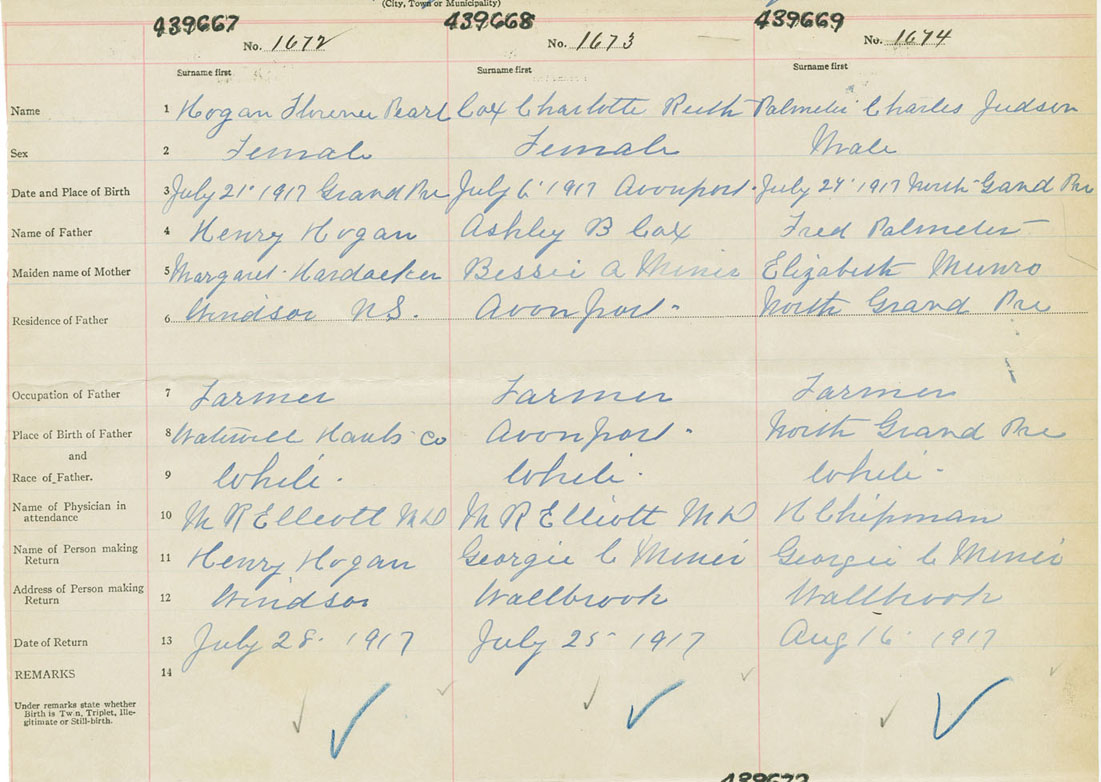 (City, Town or Municipality)
439667 439668 439669
No. 1672 No. 1673 No. 1674
Surname first Surname first Surname first
Name 1 Hogan Florence Pearl Cox Charlotte Ruth Palmeter Charles Judson
Sex 2 Female Female Male
Date and Place of Birth 3 July 21" 1917 Grand Pre July 6" 1917 Avonport July 24" 1917 North Gand Pre
Name of Father 4 Henry Hogan Ashley B Cox Fred Palmeter
Maiden name of Mother 5 Margaret Hardacker Bessie A Miner Elizabeth Munro
Residence of Father 6 Windsor N.S. Avonport North Grand Pre
Occupation of Father 7 Farmer Farmer Farmer
Place of Birth of Father 8 Hants Co Avonport North Grand Pre
and
Race of Father. 9 White White White
Name of Physician in
attendance 10 M R Elliott M D M R Elliott M D H Chipman
Name of Person making
Return 11 Henry Hogan Georgie C Miner Georgie C Miner
Address of Person making
Return 12 Windsor Wallbrook Wallbrook
Date of Return 13 July 28 1917 July 25 1917 Aug 16 1917
REMARKS 14
Under remarks state whether
Birth is Twin, Triplet, Ille-
gitimate or Still-birth.